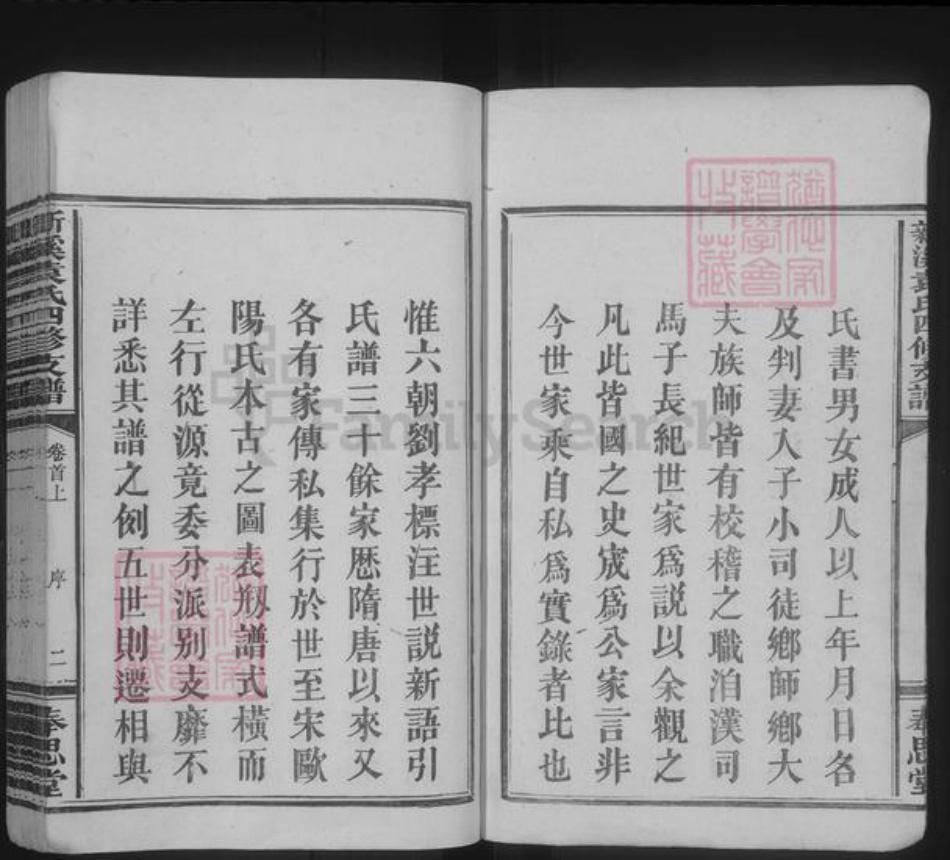 新溪袁氏四修支譜
奉思堂
氏書男女成人以上年月日各
及判妻入子小司徒鄉師鄉大
夫族師皆有校稽之職洎漢司
馬子長紀世家爲說以余觀之
凡此皆國之史宬爲公家言非
今世家乘自私爲實錄者比也
惟六朝劉孝標注世說新語引
氏譜三十餘家歷隋唐以來又
各有家傳私集行於世至宋歐
陽氏本古之圖表剏譜式橫而
左行從源竟委分派别支靡不
詳悉其譜之例五世則遷相與
新溪袁氏四修支譜
卷首上
序
二
奉思堂
FamilySearch